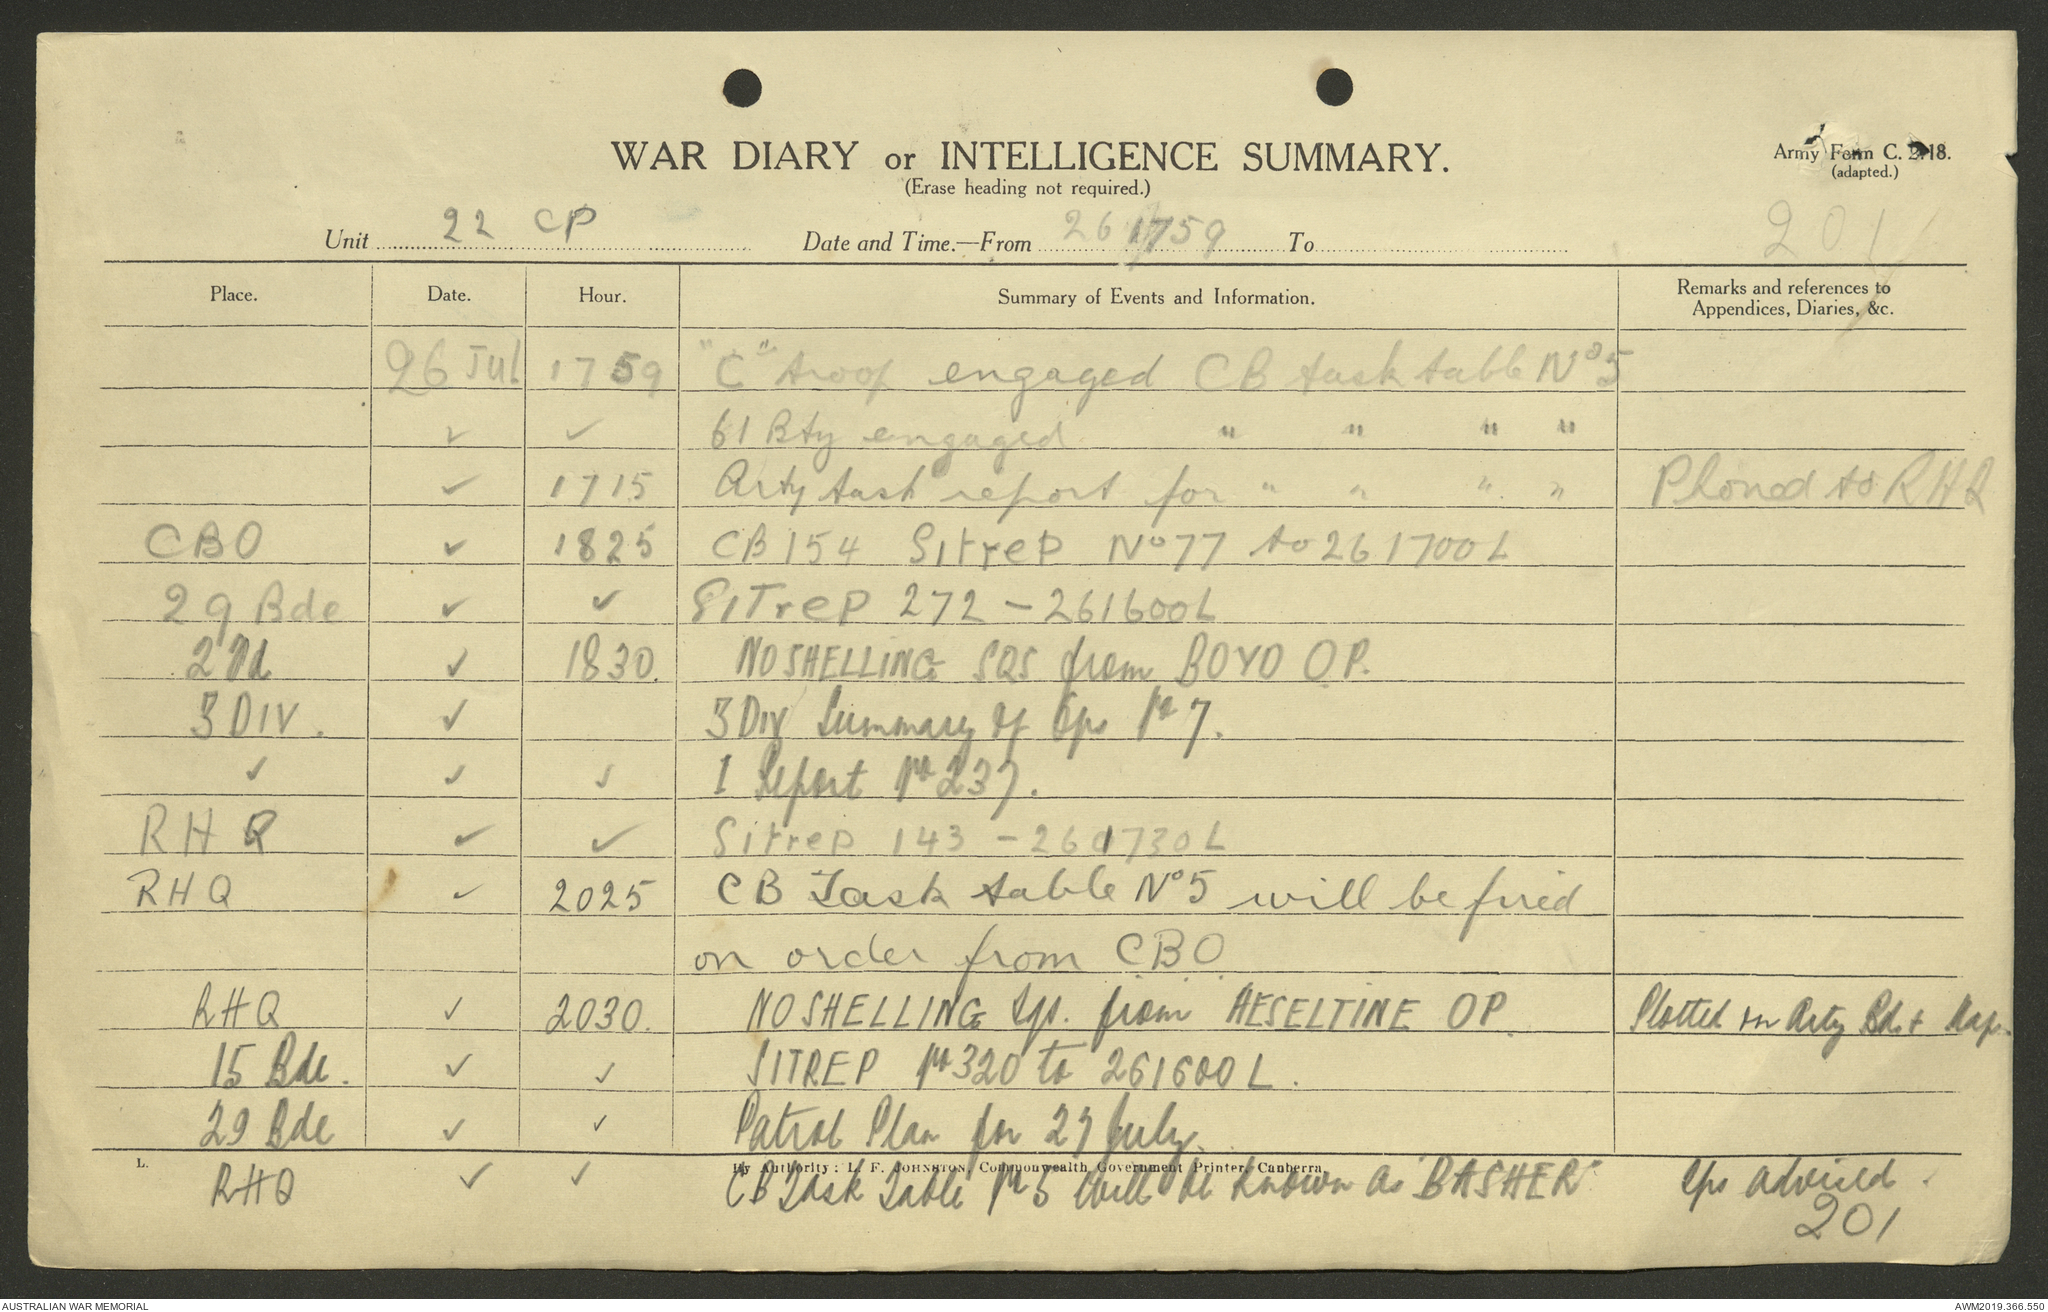 WAR DIARY or INTELLIGENCE SUMMARY.
(Erase heading not required.)
Army Form C. 2118.
(adapted.)
Unit 22 CP Date and Time.—From 261759 To
201
Place. Date. Hour. Summary of Events and Information. Remarks and references to Appendices, Diaries, &c.
26 Jul 1759 "C" troop engaged CB task table No 5
✓ ✓ 61 Bty engaged " " " "
✓ 1715 Arty task report for " " " " Phoned to RHQ
CBO ✓ 1825 CB 154 Sitrep No 77 to 261700L
29 Bde ✓ ✓ SITreP 272 – 261600L
2 Fd ✓ 1830. NOSHELLING SQS from BOYO O.P.
3 DIV. ✓ 3 DIV Summary of Ops No 7.
✓ ✓ ✓ I Report No 237.
RHQ ✓ ✓ Sitrep 143 – 261730L
RHQ ✓ 2025 CB Task table No 5 will be fired
on order from CBO
RHQ ✓ 2030. NOSHELLING Sqs. from HESELTINE OP. Plotted on Arty Bd & Map.
15 Bde. ✓ ✓ SITREP No 320 to 261600L.
29 Bde ✓ ✓ Patrol Plan for 27 July.
L. By Authority: L. F. JOHNSTON, Commonwealth Government Printer, Canberra.
RHQ ✓ ✓ CB Task Table No 5 will be known as "BASHER" Ops advised.
201
AUSTRALIAN WAR MEMORIAL
AWM2019.366.550